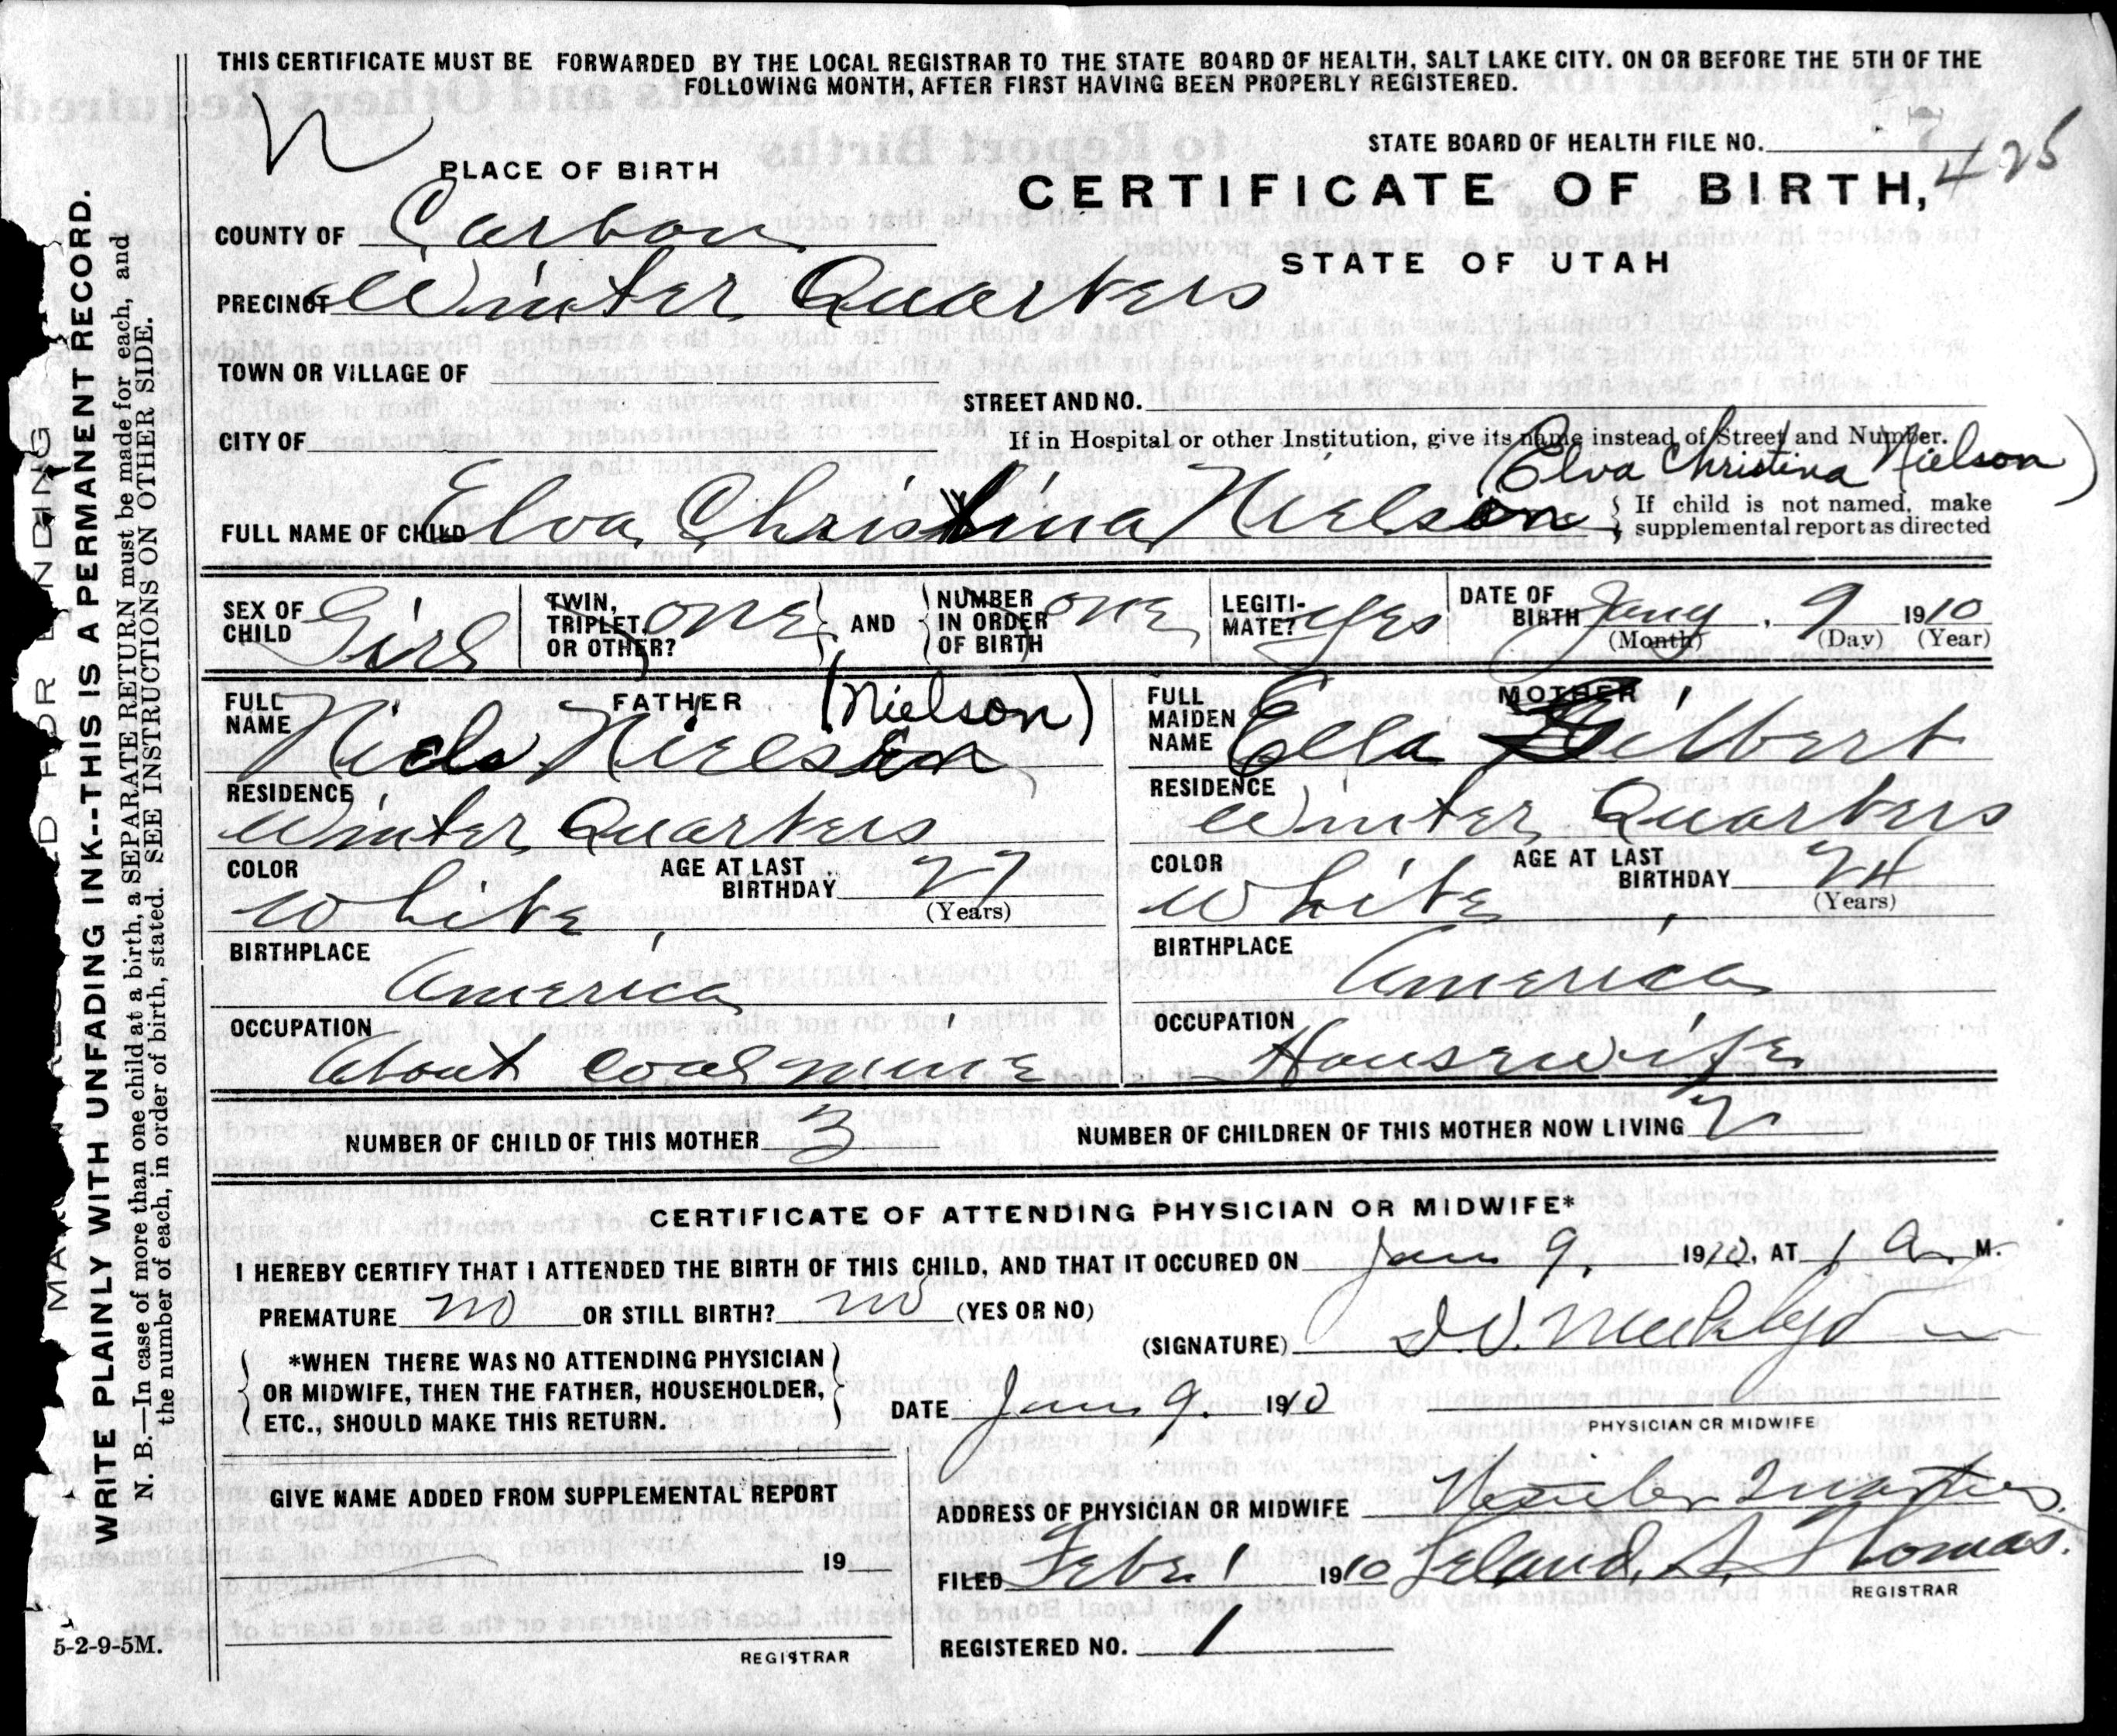 THIS CERTIFICATE MUST BE FORWARDED BY THE LOCAL REGISTRAR TO THE STATE BOARD OF HEALTH, SALT LAKE CITY. ON OR BEFORE THE 5TH OF THE
FOLLOWING MONTH, AFTER FIRST HAVING BEEN PROPERLY REGISTERED.
STATE BOARD OF HEALTH FILE NO. 425
PLACE OF BIRTH
CERTIFICATE OF BIRTH,
STATE OF UTAH
COUNTY OF Carbon
PRECINCT Winter Quarters
TOWN OR VILLAGE OF
STREET AND NO.
CITY OF
If in Hospital or other Institution, give its name instead of Street and Number.
(Elva Christina Nielson)
FULL NAME OF CHILD Elva Christina Nielson
If child is not named, make
supplemental report as directed
SEX OF CHILD Girl
TWIN, TRIPLET, OR OTHER? one
AND NUMBER IN ORDER OF BIRTH one
LEGITI-MATE? yes
DATE OF BIRTH Jany 9 1910
(Month) (Day) (Year)
FATHER
FULL NAME Niels Nielson (Nielson)
RESIDENCE Winter Quarters
COLOR White
AGE AT LAST BIRTHDAY 27
(Years)
BIRTHPLACE America
OCCUPATION About coal mine
MOTHER
FULL MAIDEN NAME Ella Gilbert
RESIDENCE Winter Quarters
COLOR White
AGE AT LAST BIRTHDAY 24
(Years)
BIRTHPLACE America
OCCUPATION Housewife
NUMBER OF CHILD OF THIS MOTHER 3
NUMBER OF CHILDREN OF THIS MOTHER NOW LIVING 2
CERTIFICATE OF ATTENDING PHYSICIAN OR MIDWIFE*
I HEREBY CERTIFY THAT I ATTENDED THE BIRTH OF THIS CHILD, AND THAT IT OCCURED ON Jan 9, 1910, AT 1 A. M.
PREMATURE no OR STILL BIRTH? no (YES OR NO)
(SIGNATURE)
*WHEN THERE WAS NO ATTENDING PHYSICIAN
OR MIDWIFE, THEN THE FATHER, HOUSEHOLDER,
ETC., SHOULD MAKE THIS RETURN.
DATE Jan 9. 1910
PHYSICIAN OR MIDWIFE
GIVE NAME ADDED FROM SUPPLEMENTAL REPORT
19
REGISTRAR
ADDRESS OF PHYSICIAN OR MIDWIFE Winter Quarters.
FILED Feb. 1 1910 Leland A. Thomas.
REGISTRAR
REGISTERED NO. 1
WRITE PLAINLY WITH UNFADING INK--THIS IS A PERMANENT RECORD.
N. B.—In case of more than one child at a birth, a SEPARATE RETURN must be made for each, and
the number of each, in order of birth, stated. SEE INSTRUCTIONS ON OTHER SIDE.
5-2-9-5M.